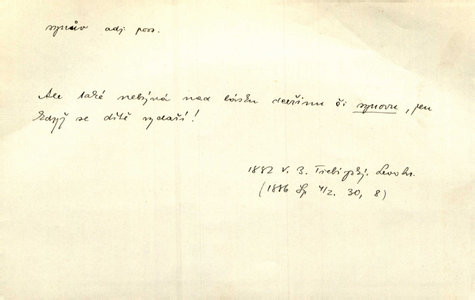 synův adj. poss.
Ale také nebývá nad lásku dceřinu či synovu, jen
když se dítě vydaří!
1882 V. B. Třebízský, Levohr.
(1886 Sp 4/2. 30, 8)